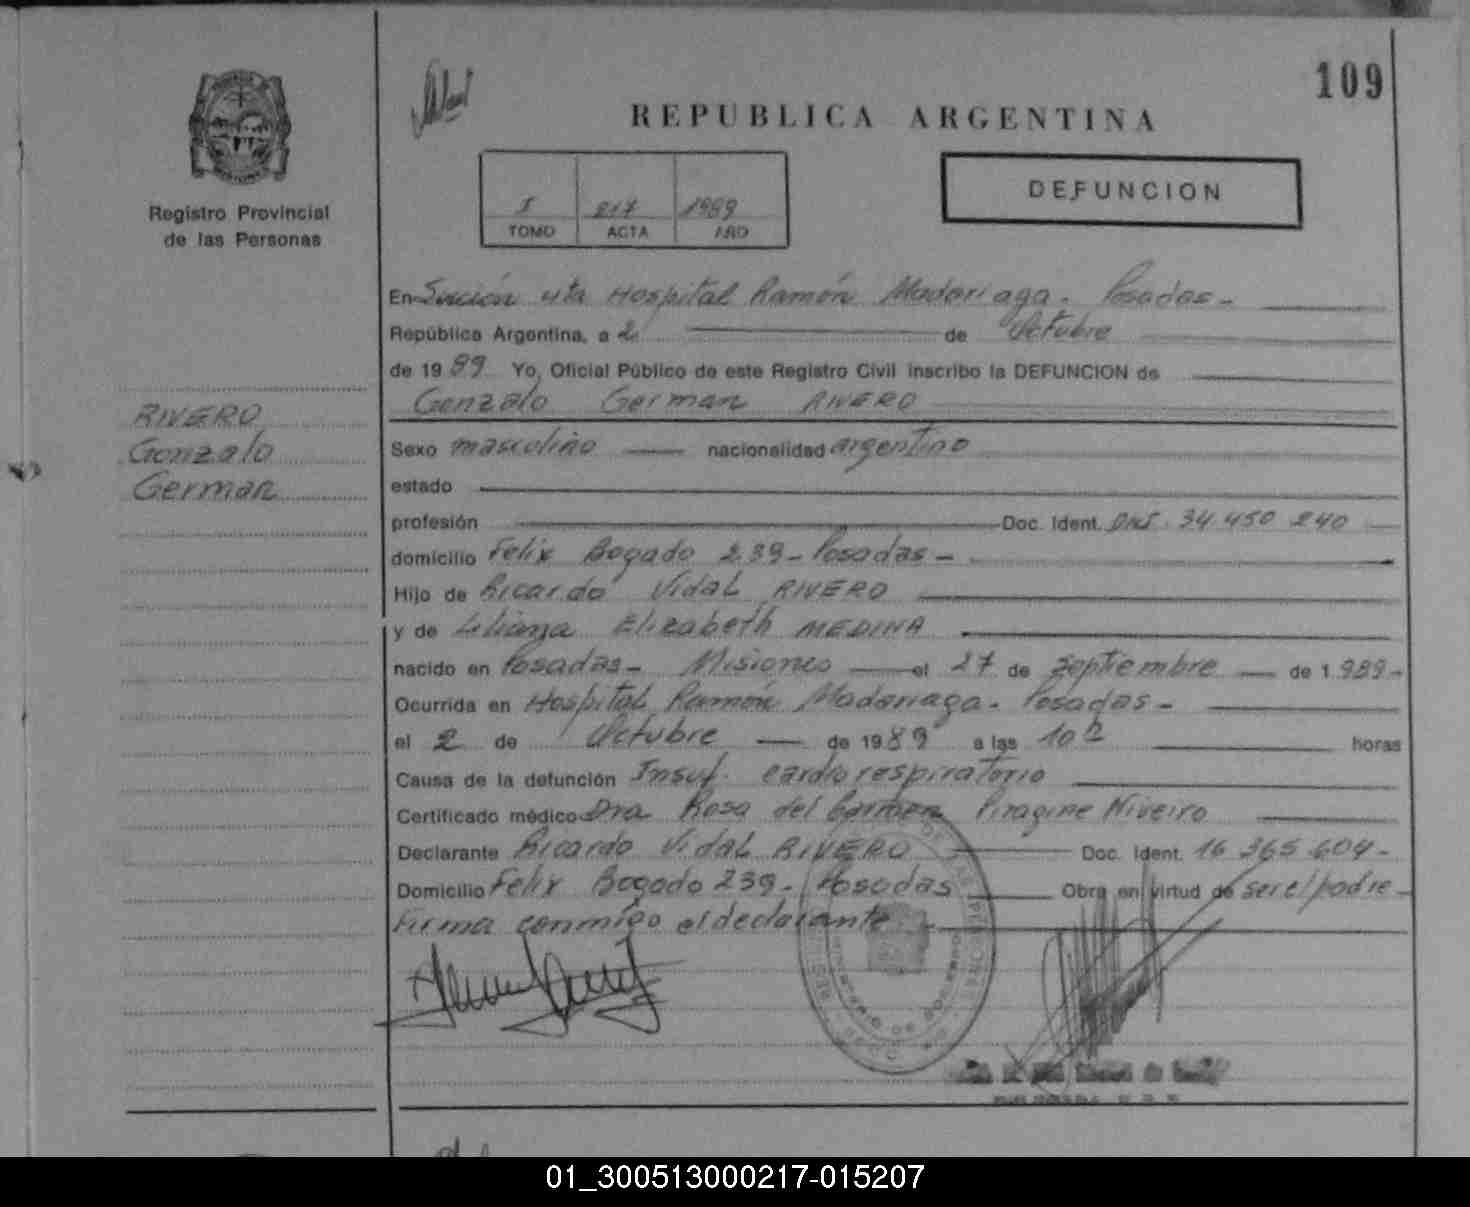 109
REPUBLICA ARGENTINA
Registro Provincial
de las Personas
I 217 1989
TOMO ACTA AÑO
DEFUNCION
RIVERO
Gonzalo
German
En Sección 4ta Hospital Ramón Madariaga. Posadas -
República Argentina, a 2 de Octubre
de 1989 Yo, Oficial Público de este Registro Civil inscribo la DEFUNCION de
Gonzalo German RIVERO
Sexo masculino nacionalidad argentino
estado
profesión Doc. Ident. DNI. 34.450 240
domicilio Felix Bogado 239 - Posadas -
Hijo de Ricardo Vidal RIVERO
y de Liliana Elizabeth MEDINA
nacido en Posadas - Misiones el 27 de septiembre de 1.989 -
Ocurrida en Hospital Ramón Madariaga. Posadas -
el 2 de Octubre de 1989 a las 10 horas
Causa de la defunción Insuf. cardiorespiratorio
Certificado médico Dra Rosa del Carmen Piragine Niveiro
Declarante Ricardo Vidal RIVERO Doc. Ident. 16 365 604 -
Domicilio Felix Bogado 239 - Posadas Obra en virtud de ser el padre -
Firma conmigo el declarante -
01_300513000217-015207